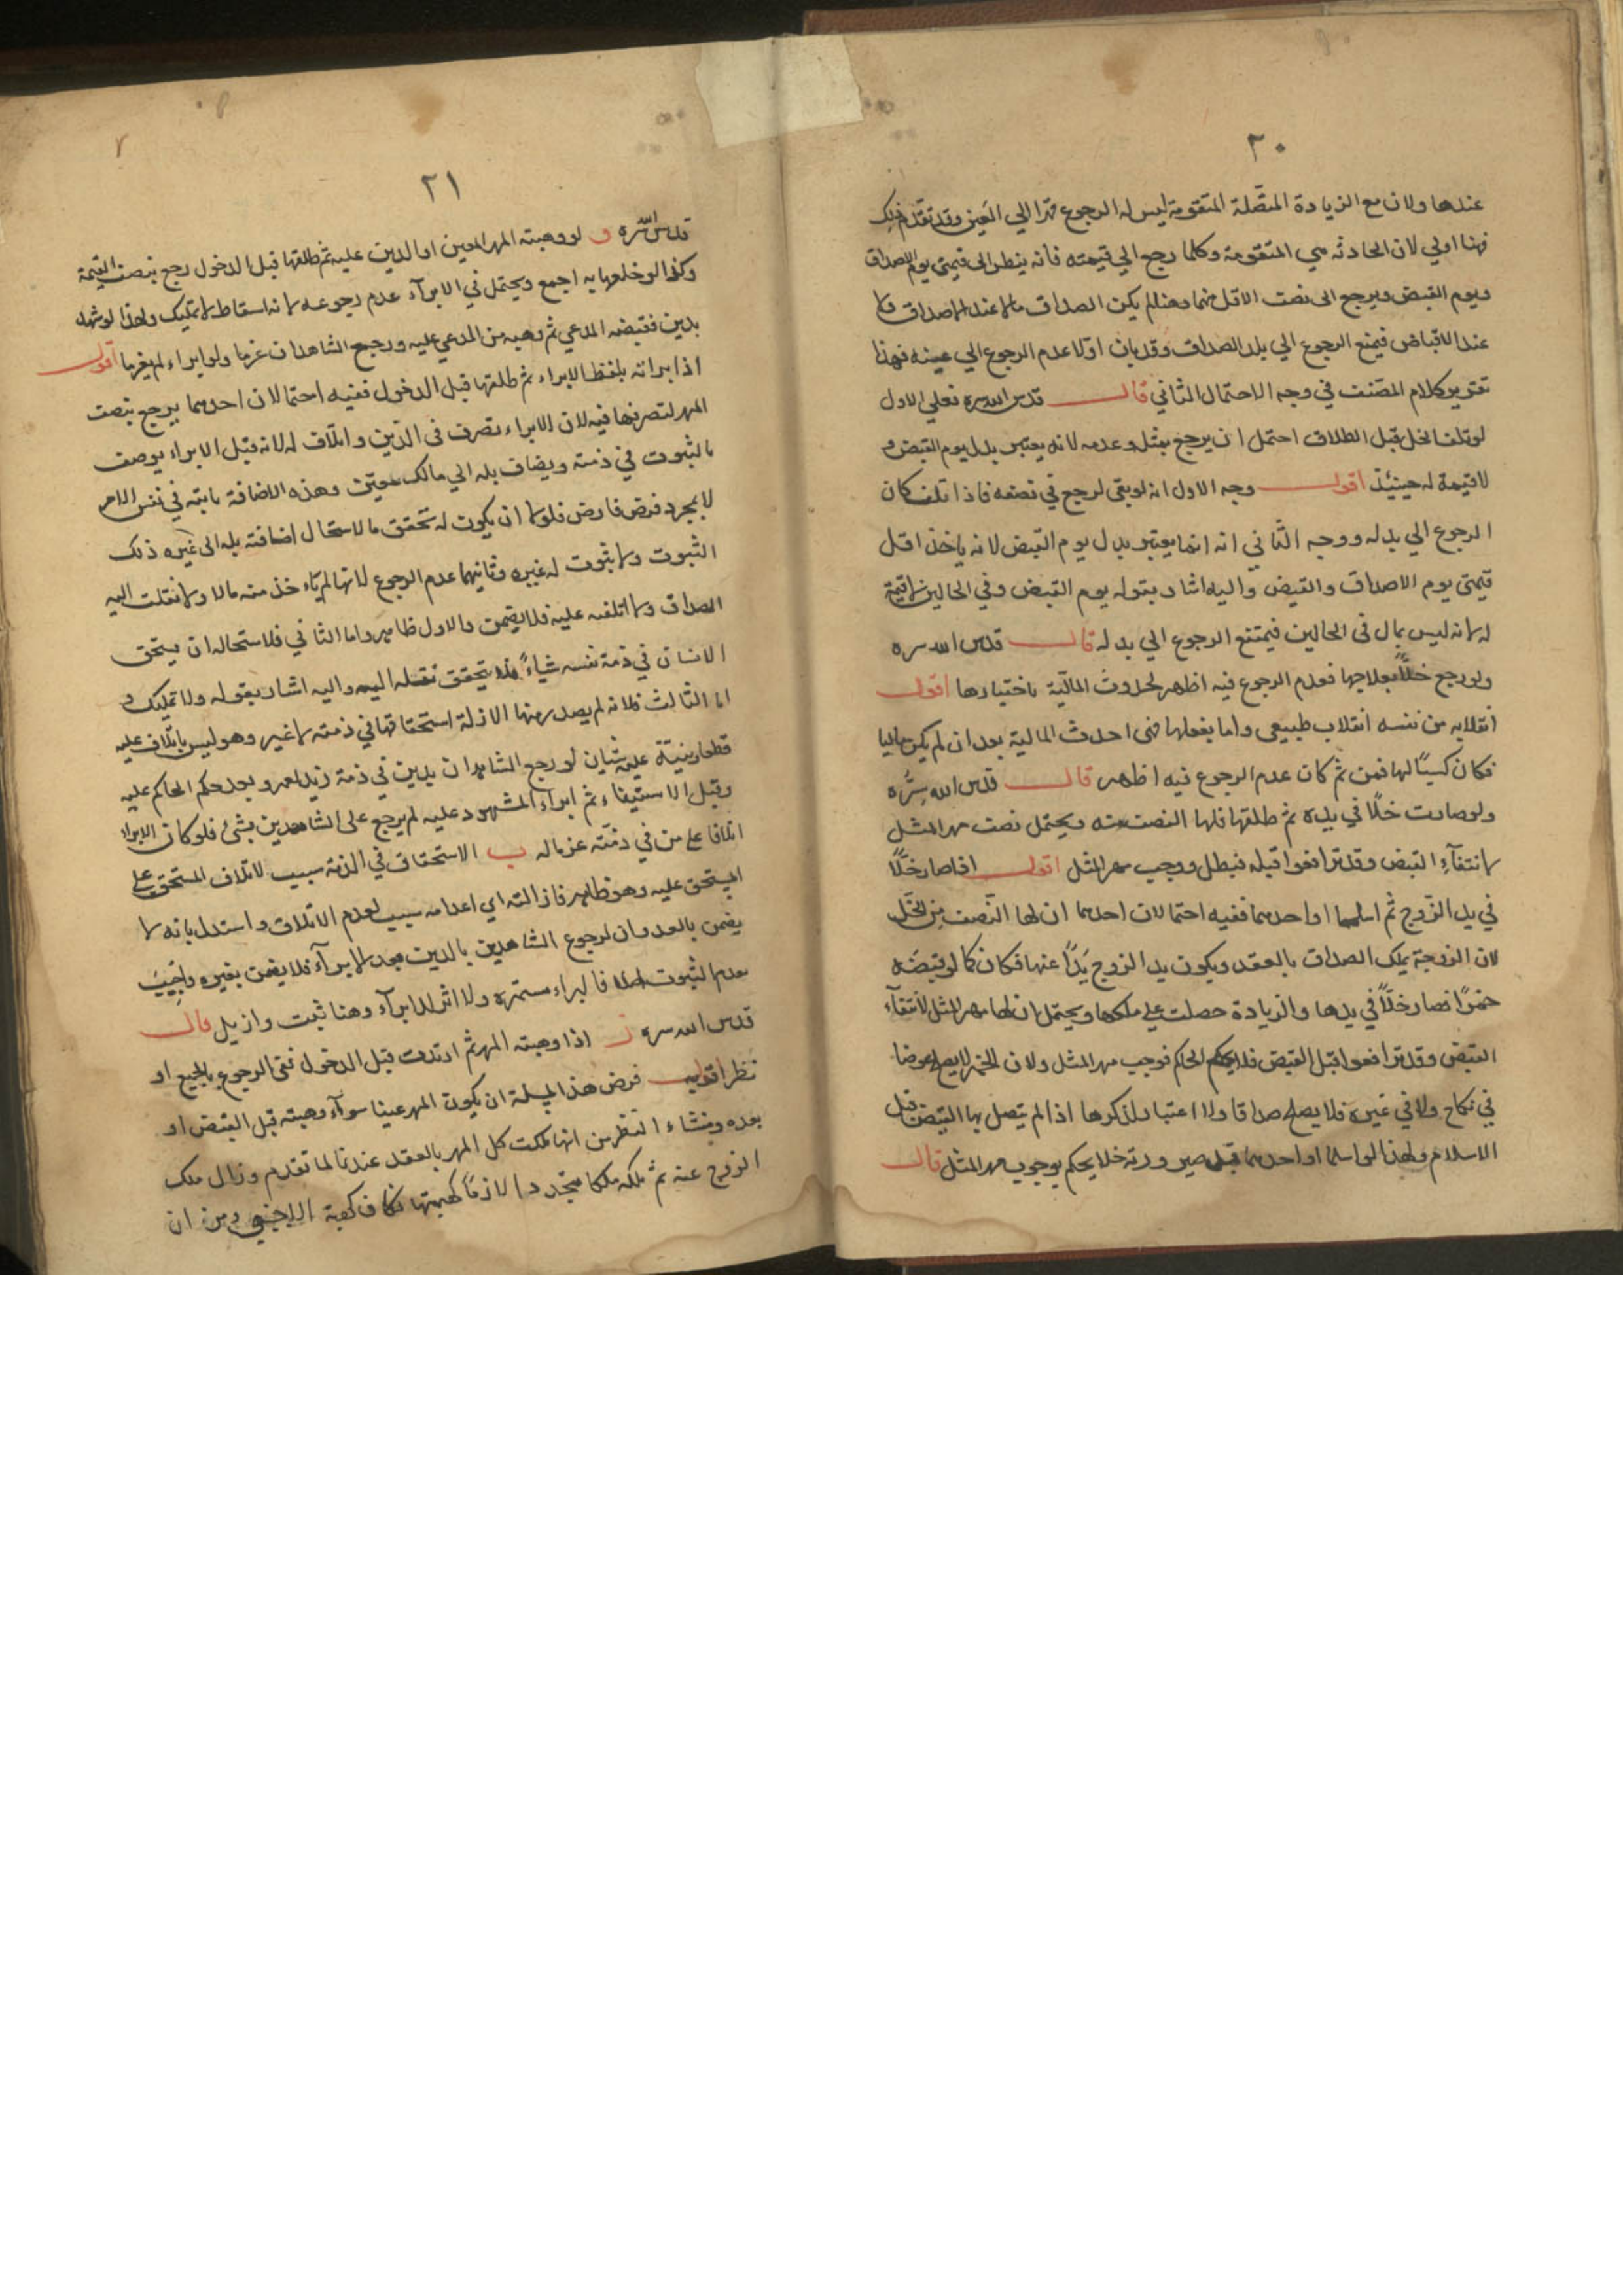 ٢٠
عندها ولان مع الزيادة المتصلة المتقومة ليس له الرجوع قهرا الي العين وقد تقدم ذلك
فهنا اولي لان الحادثه هي المتقومة وكلما رجع الي قيمته فانه ينظر الى قيمتي يوم الاصداق
ويوم القبض ويرجع الى نصف الاقل منهما وهنا لم يكن الصداق مالا عند الاصداق ولا
عند الاقباض فيمنع الرجوع الي بدل الصداق وقد بان اولا عدم الرجوع الي عينه فهذا
تقرير كلام المصنف في وجه الاحتمال الثاني قال قدس الله سره فعلي الاول
لو تلف الخل قبل الطلاق احتمل ان يرجع بمثله وعدمه لانه يعتبر بدل يوم القبض و
لا قيمة له حينئذ اقول وجه الاول انه لو بقى لرجع في نصفه فاذا تلف كان
الرجوع الي بدله ووجه الثاني انه انما يعتبر بدل يوم القبض لانه ياخذ اقل
قيمتي يوم الاصداق والقبض واليه اشار بقوله يوم القبض وفي الحالين لا قيمة
له لانه ليس بمال في الحالين فيمتنع الرجوع الي بدله قال قدس الله سره
ولو رجع خلًا بعلاجها فعدم الرجوع فيه اظهر لحدوث المالية باختيارها اقول
انقلابه من نفسه انقلاب طبيعى واما بفعلها فهى احدث المالية بعد ان لم يكن ماليا
فكان كسبًا لها فمن ثم كان عدم الرجوع فيه اظهر قال قدس الله سره
ولو صارت خلًا في يده ثم طلقها فلها النصف منه ويحتمل نصف مهر المثل
لانتفآء القبض وقد ترافعوا قبله فبطل ووجب مهر المثل اقول اذا صار خلًا
في يد الزوج ثم اسلما او احدهما ففيه احتمالان احدهما ان لها النصف من الخل
لان الزوجة يملك الصداق بالعقد ويكون يد الزوج يدًا عنها فكان كما لو قبضه
خمرًا فصار خلًا في يدها والزيادة حصلت على ملكها ويحتمل ان لها مهر المثل لانتفآء
القبض وقد ترافعوا قبل القبض فلا يحكم الحاكم فوجب مهر المثل ولان الخمر لا يصلح عوضا
في نكاح ولا في غيره فلا يصلح صداقا ولا اعتبار لذكرها اذا لم يتصل بها القبض قبل
الاسلام ولهذا لو اسلما او احدهما قبل صيرورته خلا يحكم بوجوب مهر المثل قال
٢١
قدس الله سره و لو وهبته المهر المعين او الدين عليه ثم طلقها قبل الدخول رجع بنصف القيمة
وكذا لو خلعها به اجمع ويحتمل في الابرآء عدم رجوعه لانه اسقاط لا تمليك ولهذا لو شهد
بدين فقبضه المدعي ثم وهبه من المدعي عليه ورجع الشاهدان غرما ولو ابراء لم يغرما اقول
اذا ابراته بلفظ الابراء ثم طلقها قبل الدخول ففيه احتمالان احدهما يرجع بنصف
المهر لتصرفها فيه لان الابراء تصرف في الدين واتلاف له لانه قبل الابراء يوصف
بالثبوت في ذمته ويضاف بله الي مالك معين وهذه الاضافة ثابته في نفس الامر
لا بمجرد فرض فارض فلولا ان يكون له تحقق ما لاستحال اضافته بله الى غيره ذلك
الثبوت ولا ثبوت له غيره وثانيهما عدم الرجوع لانها لم ياء خذ منه مالا ولا نقلت اليه
الصداق ولا اتلفه عليه فلا يضمن والاول ظاهر واما الثاني فلاستحاله ان يستحق
الانسان في ذمة نفسه شياءً فلا يتحقق نقله اليه واليه اشار بقوله ولا تمليك و
اما الثالث فلانه لم يصدر منها الا ازلة استحقاقها في ذمته لا غير وهو ليس باتلاف عليه
قطعا وينبه عليه شيئان لو رجع الشاهدان بدين في ذمة زيد لعمرو بعد حكم الحاكم عليه
وقبل الاستيفاء ثم ابراء المشهود عليه لم يرجع على الشاهدين بشئ فلو كان الابراء
اتلافا على من في ذمته عن ماله ب الاستحقاق في الذمة سبب لاتلاف المستحق على
المستحق عليه وهو ظاهر فازالته اي اعدامه سبب لعدم الاتلاف واستدل بانه لا
يضمن بالعدوان لرجوع الشاهدين بالدين بعد الابرآء فلا يضمن بغيره واجيب
بعدم الثبوت اصلا فالبراءه مستمره ولا اثر للابرآء وهنا ثبت وازيل قال
قدس الله سره ز اذا وهبته المهر ثم ارتدت قبل الدخول ففى الرجوع بالجميع او
نظر اقول فرض هذا المسلة ان يكون المهر عينا سوآء وهبته قبل القبض او
بعده ومنشاء النظر من انها ملكت كل المهر بالعقد عندنا لما تقدم وزال ملك
الزوج عنه ثم ملكه ملكا متجددا لازمًا كهبتها فكان كهبة الاجنبي ومن ان